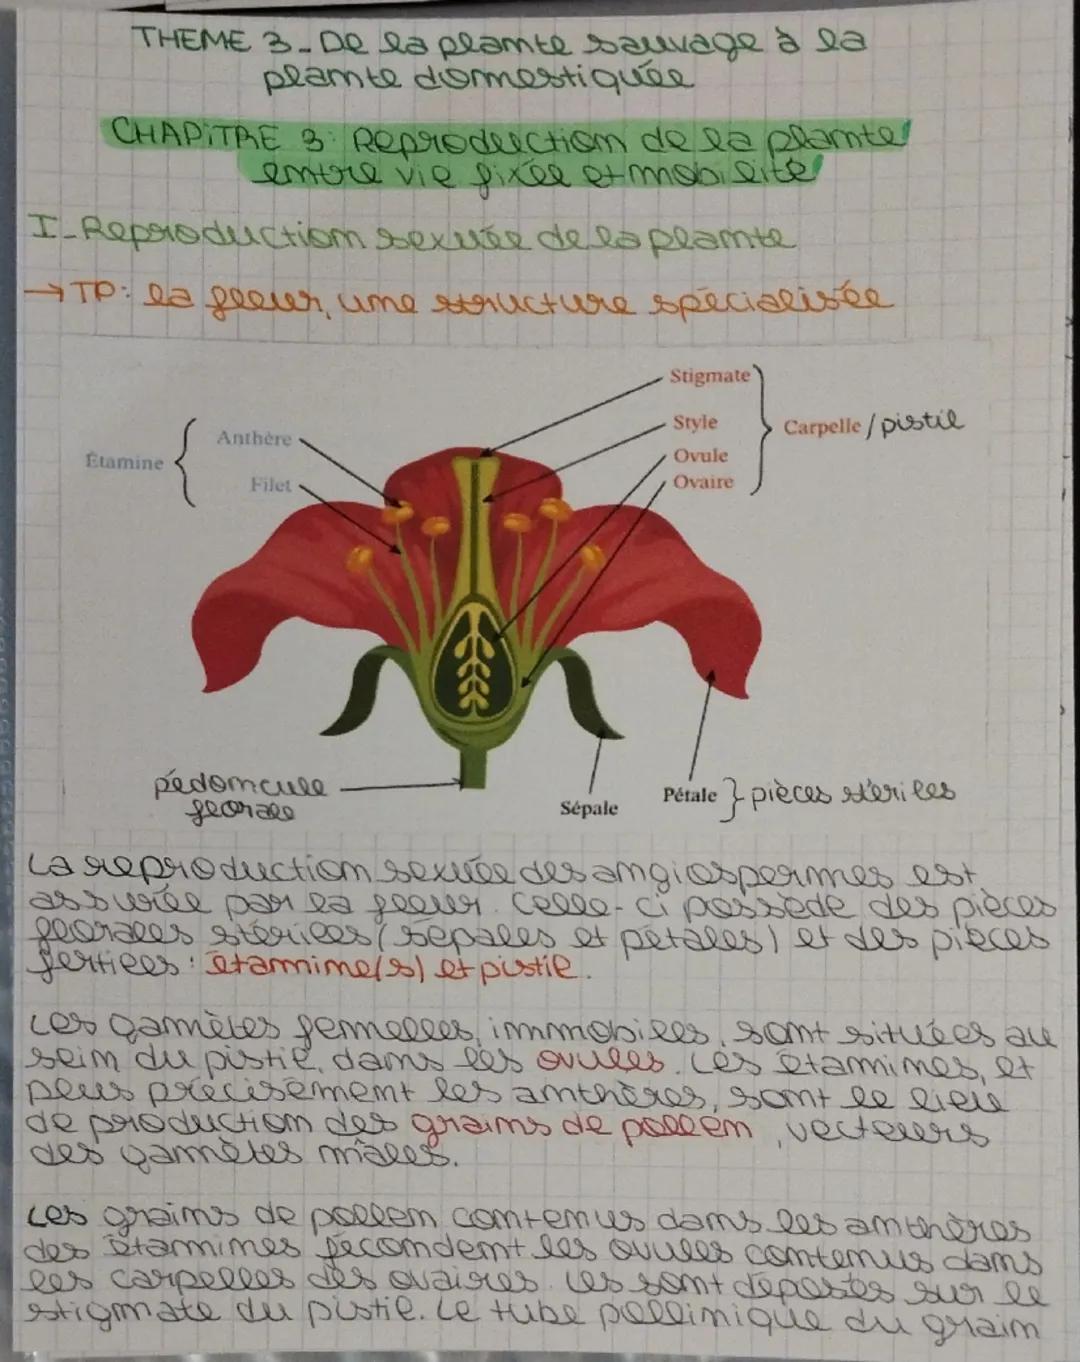 THEME 3 - De la plante sauvage à la
plante domestiquée
CHAPITRE 3: Reproduction de la plante
entre vie fixée et mobilité
I - Reproduction sexuée de la plante
→ TP: la fleur, une structure spécialisée
Stigmate
Style
Ovule
Ovaire
Carpelle / pistil
Anthère
Étamine
Filet
pédoncule
florale
Sépale
Pétale } pièces stériles
La reproduction sexuée des angiospermes est
assurée par la fleur. Celle-ci possède des pièces
florales stériles (sépales et pétales) et des pièces
fertiles: étamine(s) et pistil.
Les gamètes femelles, immobiles, sont situées au
sein du pistil, dans les ovules. Les étamines, et
plus précisément les anthères, sont le lieu
de production des grains de pollen, vecteurs
des gamètes mâles.
Les grains de pollen contenus dans les anthères
des étamines fécondent les ovules contenus dans
les carpelles des ovaires. Ils sont déposés sur le
stigmate du pistil. Le tube pollinique du grain